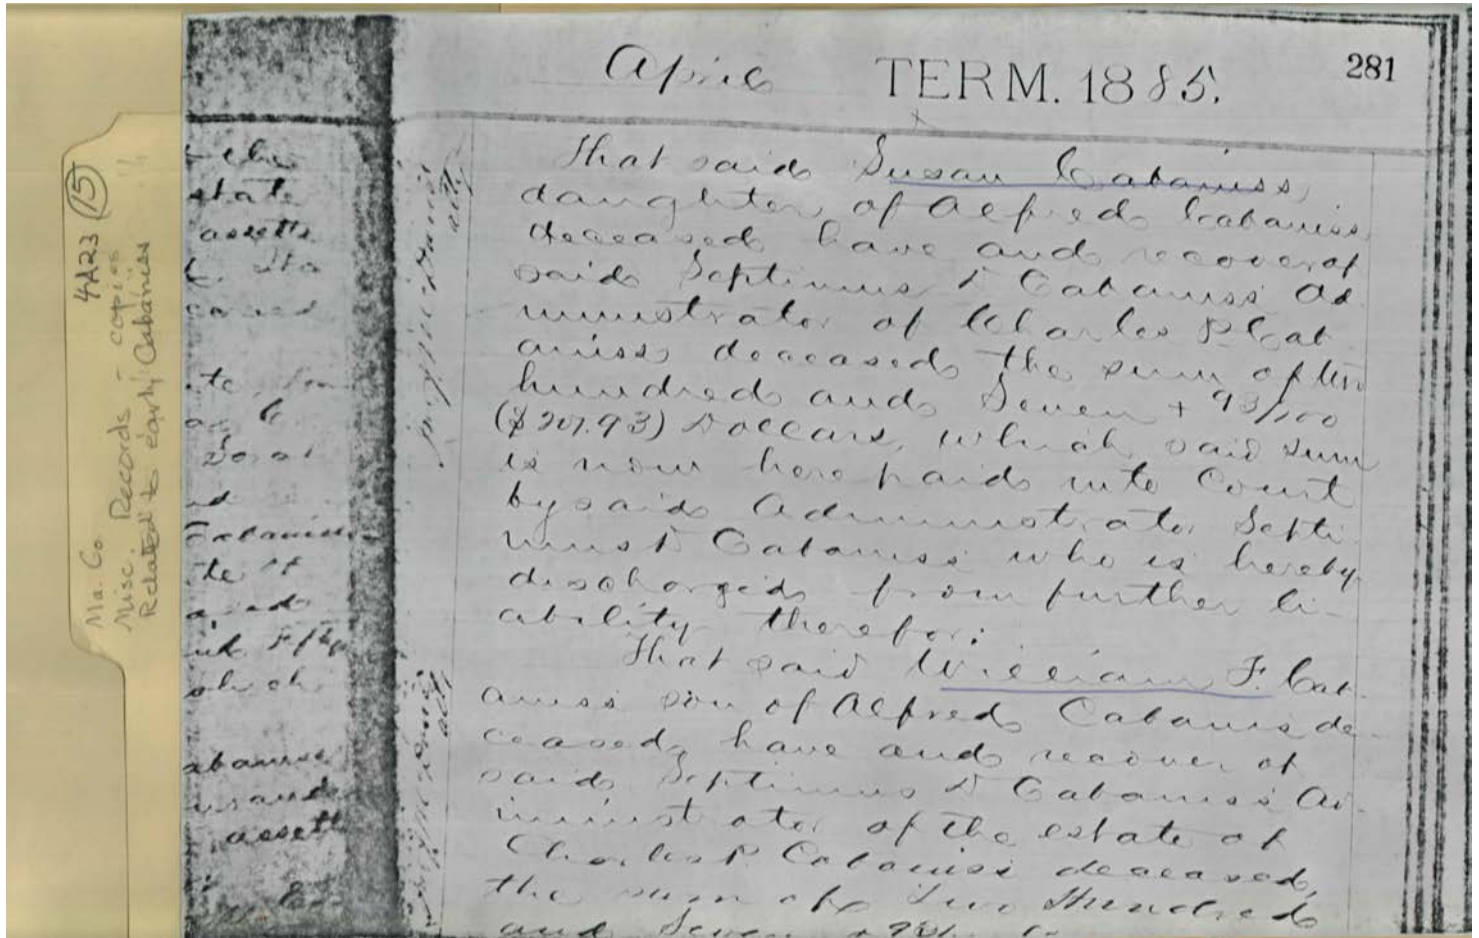 April TERM. 1885. 281
That said Susan Cabaniss,
daughter of Alfred Cabaniss
deceased have and recover of
said Septimus D Cabaniss Ad
ministrator of Charles P Cab
aniss deceased the sum of two
hundred and Seven + 93/100
($207.93) Dollars, which said sum
is now here paid into Court
by said Administrator Septi
mus D Cabaniss who is hereby
discharged from further li-
ability therefor:
That said William F. Cab-
aniss son of Alfred Cabaniss de
ceased, have and recover of
said Septimus D Cabaniss Ad-
ministrator of the estate of
Charles P Cabaniss deceased,
the sum of Two Hundred
and Seven
the
state
assetts
Cabaniss
which
abaniss
assett
4A23 (15)
Ma. Co.
Misc. Records - copies
Related to Cabaniss